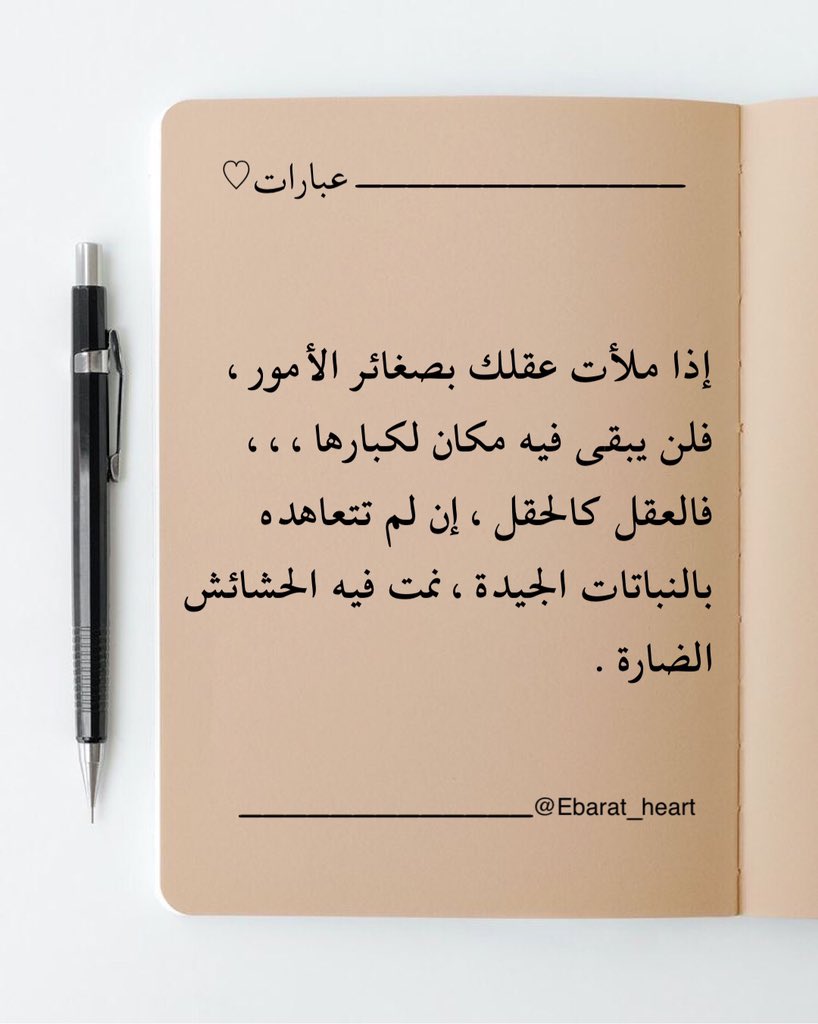 عبارات♡
إذا ملأت عقلك بصغائر الأمور ،
فلن يبقى فيه مكان لكبارها ،،،
فالعقل كالحقل ، إن لم تتعاهده
بالنباتات الجيدة ، نمت فيه الحشائش
الضارة .
@Ebarat_heart